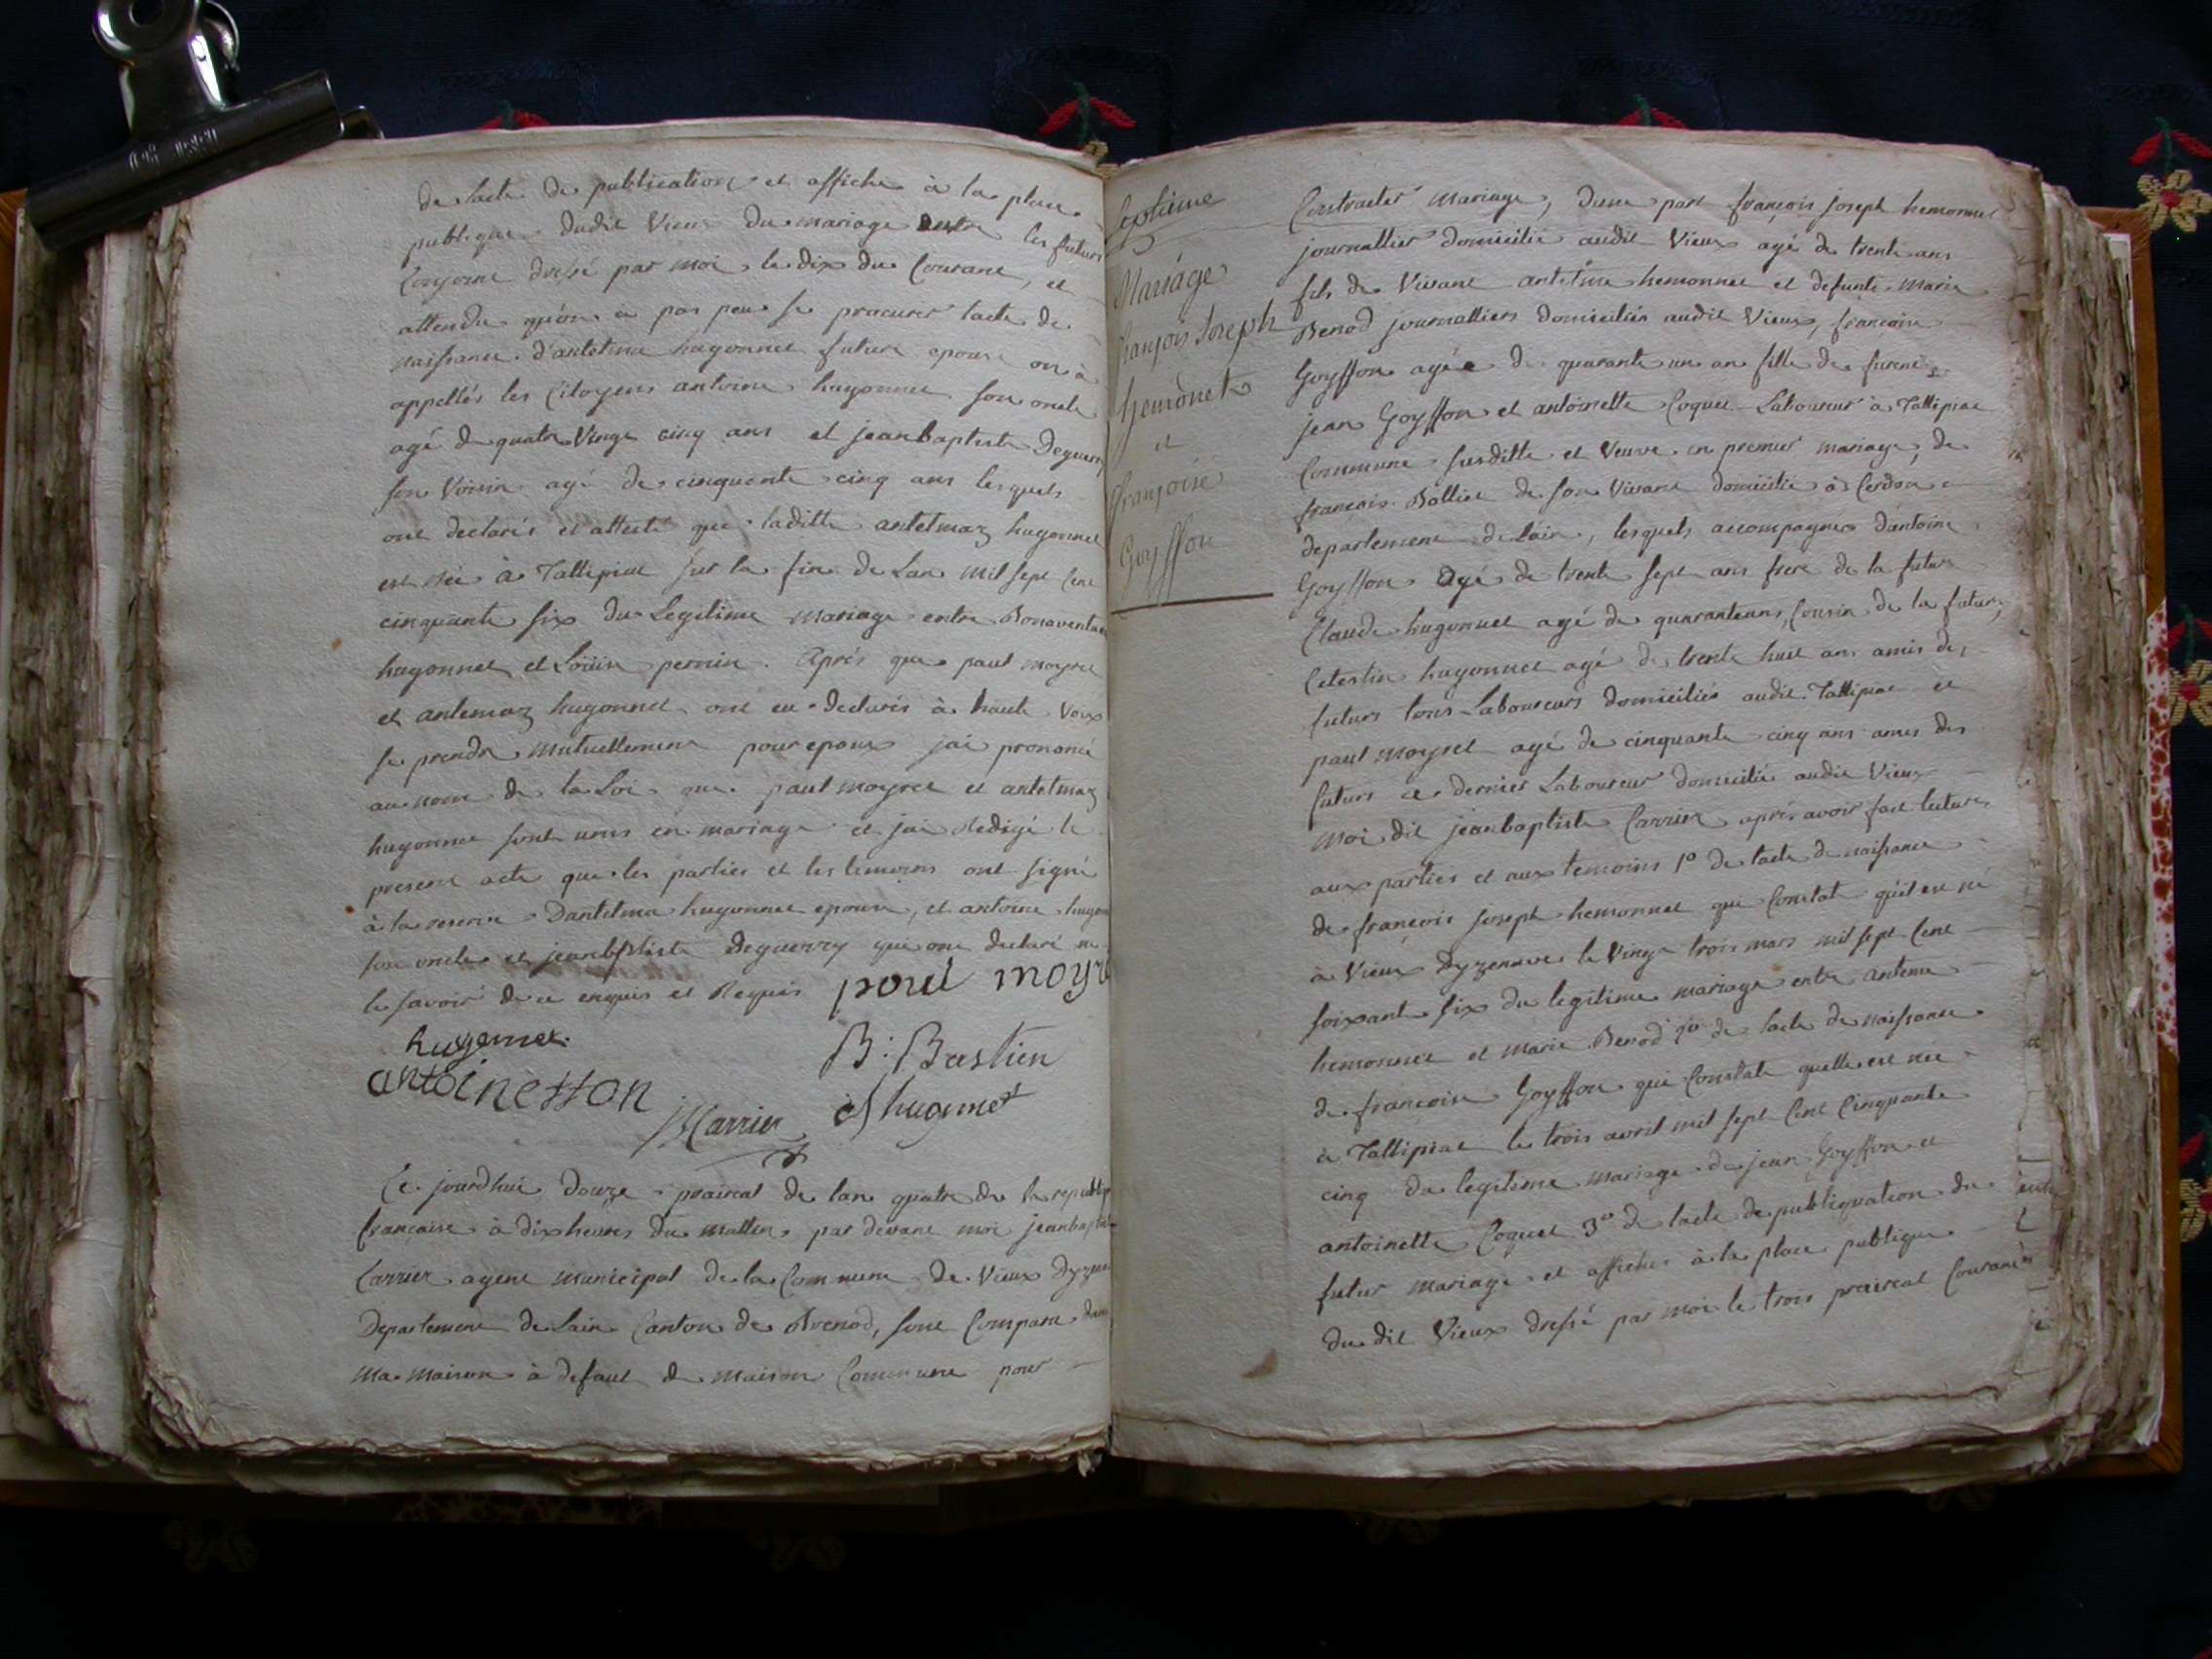 de lacte de publication et affiche à la place
publique dudit Vieux du mariage entre les futurs
Conjoint dressé par moi le dix du Courant, et
attendu qu'on a pas peu se procurer lacte de
naissance d'antelma hugonnet future epouse on à
appellés les Citoyens antoine hugonnet son oncle
agé de quatre Vingt cinq ans et jean baptiste Deguerry
son Voisin agé de cinquante cinq ans lesquels
ont declarés et attesté que laditte antelmaz hugonnet
est née à Tallipiat sur la fin de Lan mil sept Cent
cinquante six du Legitime mariage entre Bonaventure
hugonnet et Loüise perrin. Après que paul moyret
et antemaz hugonnet ont eu declarés à haute Voix
se prendre mutuellement pour epoux jai prononcé
au nom de la Loi que paul moyret et antelmaz
hugonnet sont unis en mariage et jai Redigé le
present acte que les parties et les temoins ont signé
à la reserve Dantelma hugonnet epouse, et antoine hugon
son oncle et jeanbptiste Deguerry qui ont declaré ne
le savoir de ce enquis et Requis poul moyre
hugonnet
B: Bastien
antoine
JBCarrier
hugonnet
Ce jourdhui douze prairéal de lan quatre de la republiq
française à dix heures du mattin par devant moi jeanbaptiste
Carrier agent municipal de la Commune de Vieux Dyzen
Departement de Lain Canton de Brenod, sont Comparu dans
ma maison à defaut de maison Commune pour
Septieme
Mariage
françois Joseph
hemonet
et
françoise
Goyffon
Contracter mariage, dune part françois joseph hemonnet
journallier domicilié audit Vieux agé de trente ans
fils de Vivant antelme hemonnet et defunte marie
Benod journalliers domiciliés audit Vieux, françoise
Goyffon agée de quarante un an fille de furent
jean Goyffon et antoinette Coquet Laboureur à Tallipiat
Commune susditte et Veuve en premier mariage, de
françois Bolliet de son Vivant domicilié à Cerdon
departement de Lain, lesquels accompagnés dantoine
Goyffon agé de trente sept ans frere de la future
Claude hugonnet agé de quaranteans, Cousin de la future,
Celestin hugonnet agé de trente huit ans amis des
futurs tous Laboureurs domiciliés audit Tallipiat et
paul moyret agé de cinquante cinq ans amis des
futurs ce dernier Laboureur domicilié audit Vieux
moi dit jeanbaptiste Carrier après avoir fait lecture
aux parties et aux temoins 1º de lacte de naissance
de françois joseph hemonnet qui Constat qu'il est né
à Vieux Dyzenave le Vingt trois mars mil sept Cent
soixante six du legitime mariage entre anteme
hemonnet et marie Benod 2º de lacte de naissance
de françoise Goyffon qui Constate quelle est née
à Tallipiat le trois avril mil sept Cent Cinquante
cinq du legiteme mariage de jean Goyffon et
antoinette Coquet 3º de lacte de publiquation du
futur mariage et affiches à la place publique
du dit Vieux dressé par moi le trois prairéal Courant